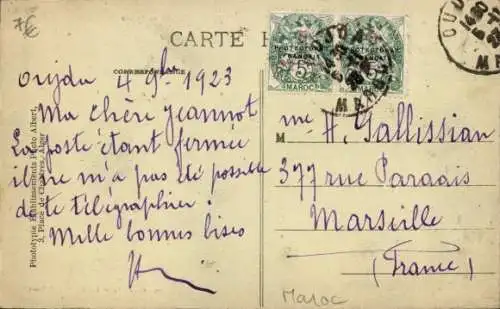 7€
CARTE
CORRESPONDANCE
Oujda 4 9bre 1923
Ma chère Jeannot
La poste étant fermée
il ne m'a pas été possible
de te télégraphier.
Mille bonnes bises
PROTECTORAT
FRANÇAIS
5
MAROC
PROTECTORAT
FRANÇAIS
5
MAROC
OUJDA
M me A. Gallissian
377 rue Paradis
Marseille
(France)
Maroc
Phototypie Etablissements Photo Albert,
2, Place de Chartres, Alger